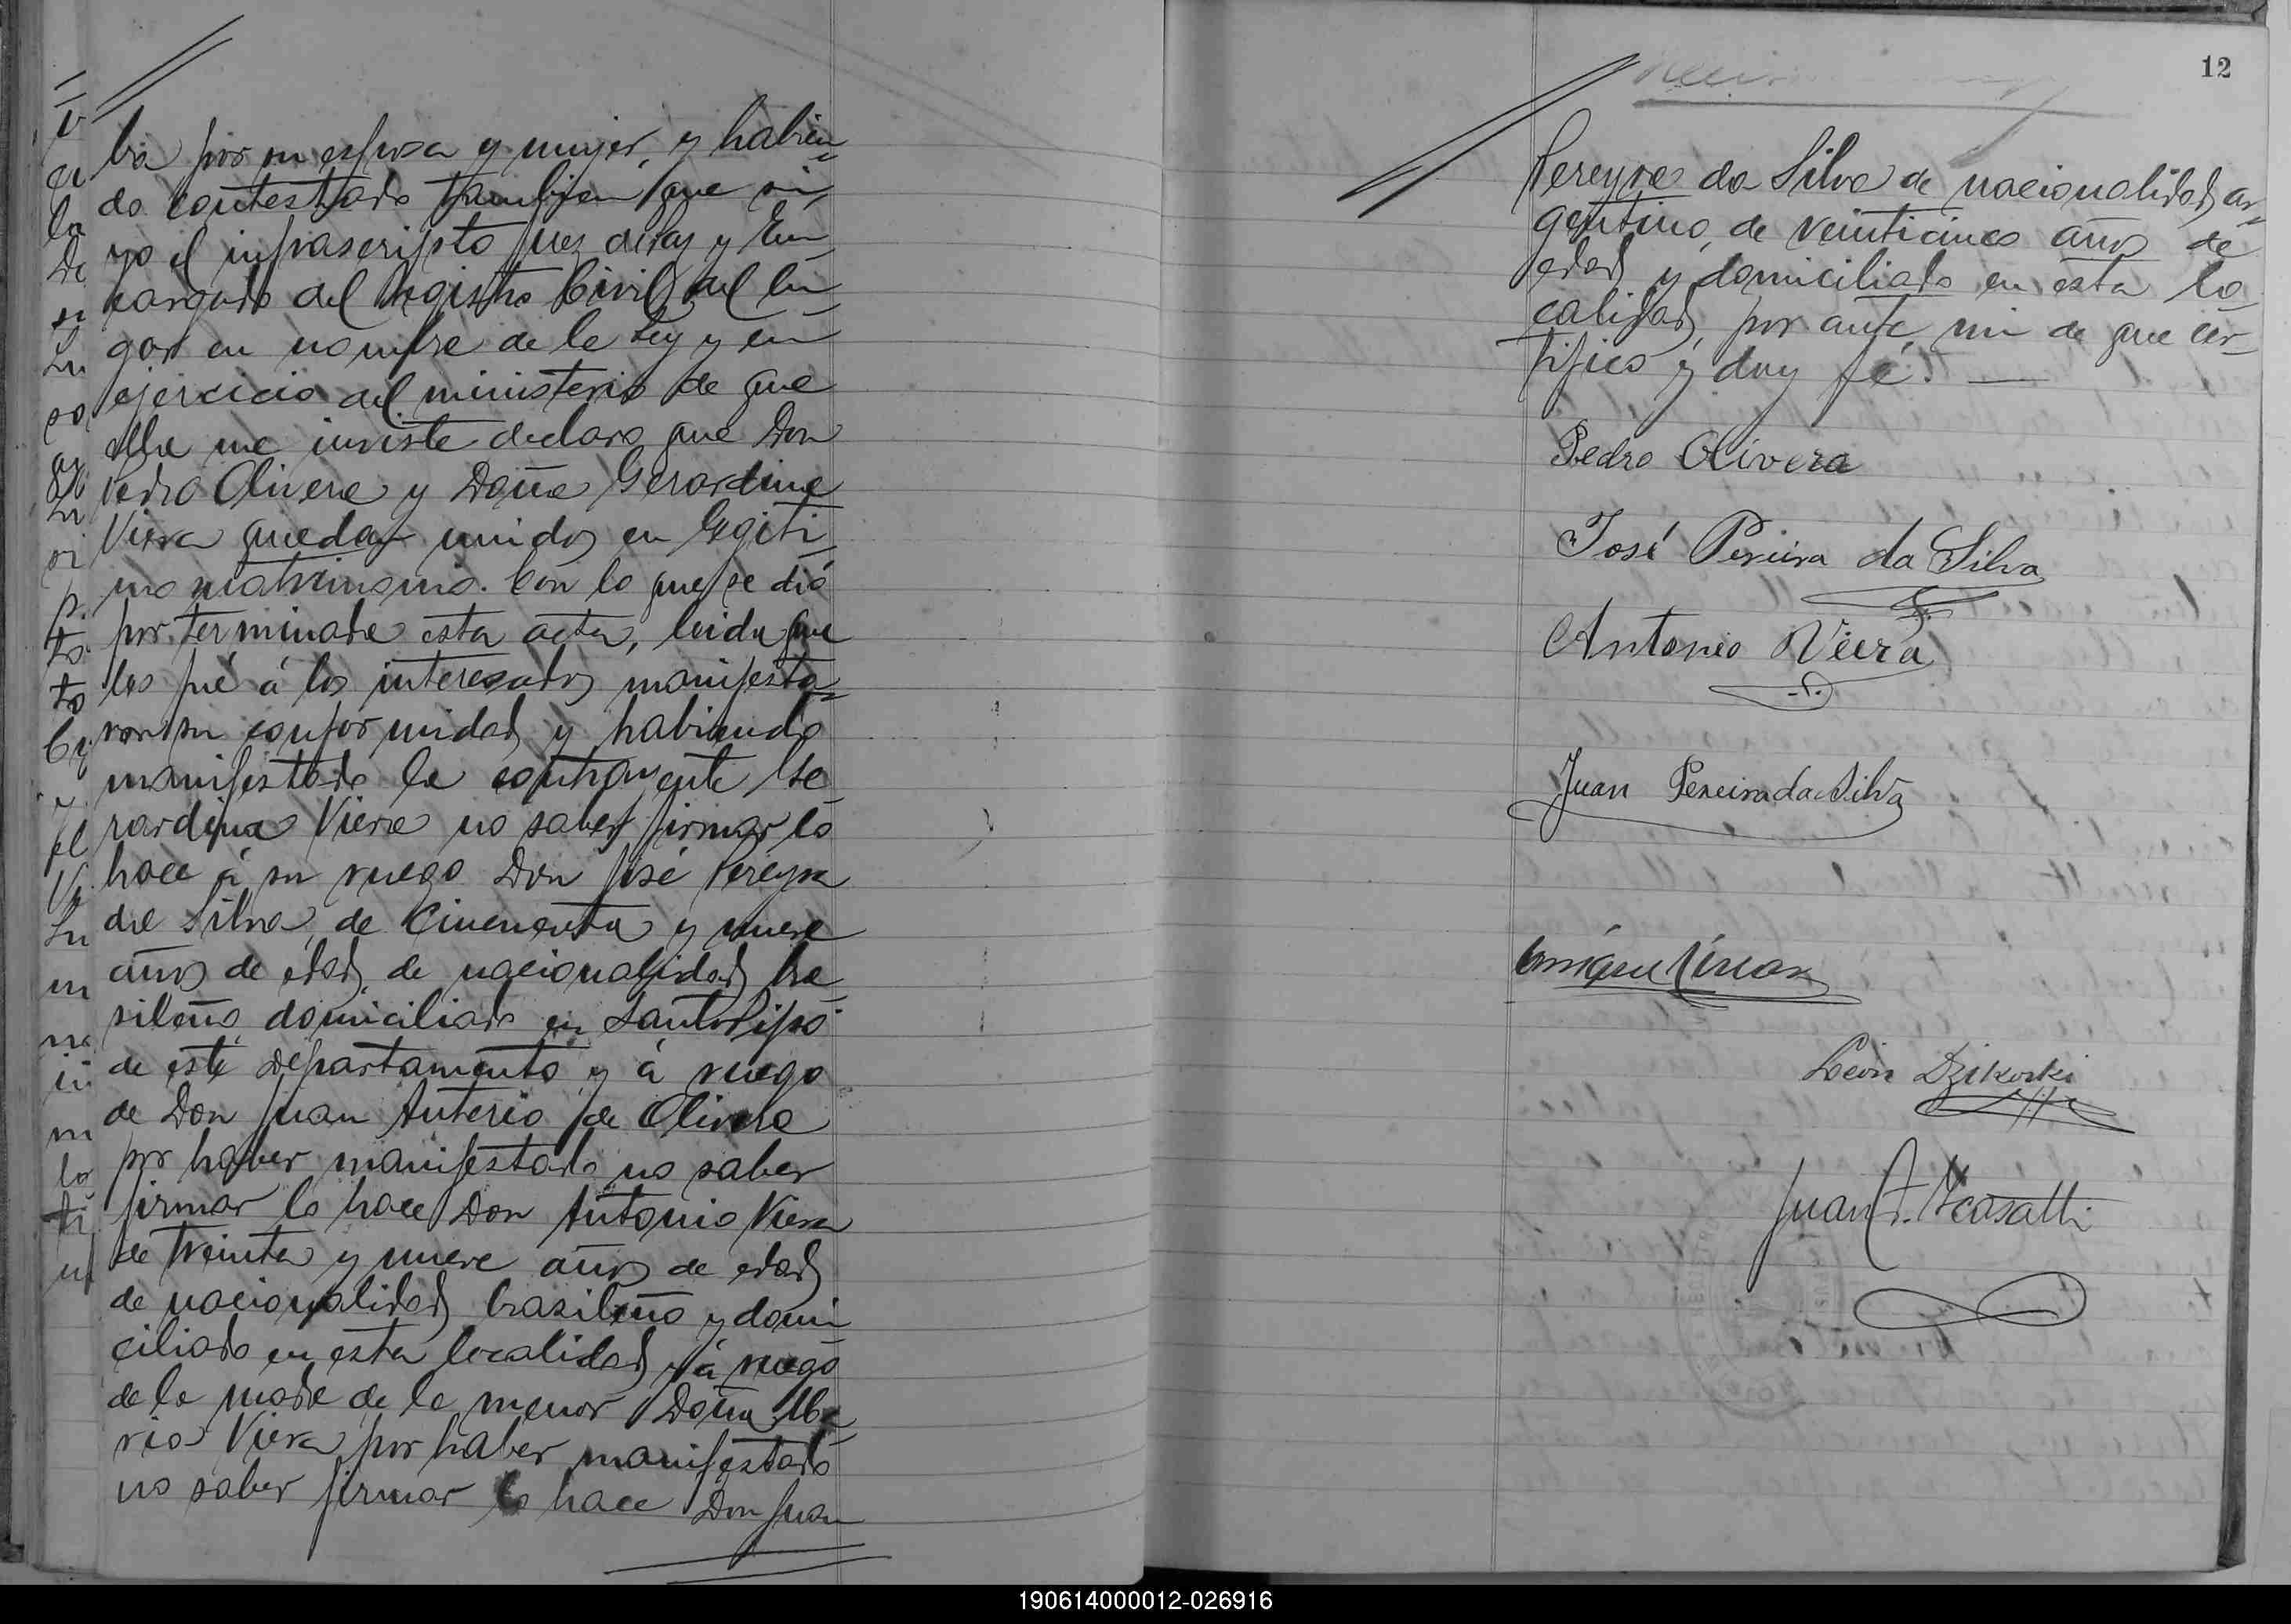 bia por su esposa y mujer, y habien-
do contestado tambien que si,
yo el infrascripto Juez de Paz y En-
cargado del Registro Civil del lu-
gar en nombre de la Ley y en
ejercicio del ministerio de que
ella me inviste declaro que Don
Pedro Olivera y Doña Gerardina
Viera quedan unidos en legiti-
mo matrimonio. Con lo que se dió
por terminada esta acta, leida que
les fué á los interesados manifesta=
ron su conformidad y habiendo
manifestado la contrayente Ge-
rardina Viera no saber firmar lo
hace á su ruego Don José Pereyra
da Silva, de cincuenta y nueve
años de edad, de nacionalidad bra-
sileño domiciliado en Santo Pipó
de este Departamento y á ruego
de Don Juan Anterio de Olivera
por haber manifestado no saber
firmar lo hace Don Antonio Viera
de treinta y nueve años de edad
de nacionalidad brasileño y domi-
ciliado en esta localidad y á ruego
de la madre de la menor Doña Ma-
ria Viera por haber manifestado
no saber firmar lo hace Don Juan
12
Pereyra da Silva de nacionalidad ar-
gentino, de veinticinco años de
edad y domiciliado en esta lo-
calidad, por ante mi de que cer-
tifico y doy fé.
Pedro Olivera
José Pereira da Silva
Antonio Vieira
Juan Pereira da Silva
León Dzikoski
190614000012-026916